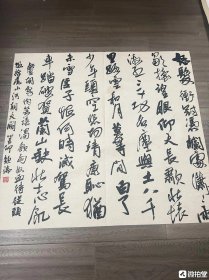 怒髮衝冠憑闌處瀟瀟雨
歇擡望眼仰天長嘯壯懷
激烈三十功名塵與土八千
里路雲和月莫等閒白了
少年頭空悲切靖康恥猶
未雪臣子恨何時滅駕長
車踏破賀蘭山缺壯志飢
餐胡虜肉笑談渴飲匈奴血待從頭
收拾舊山河朝天闕
微拍堂